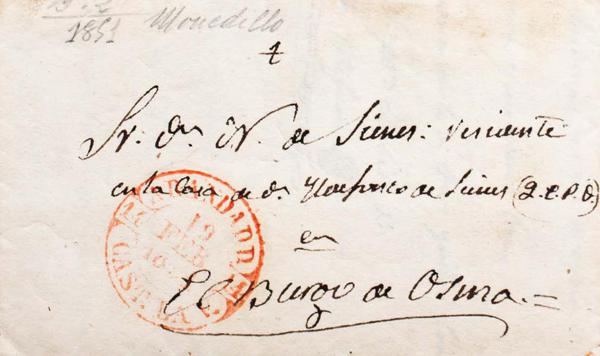 1851 Monedillo
Sr. Dn. N. de Sienes: residente
en la Casa de Dn. Ildefonso de Sienes (Q.E.P.D.)
en
El Burgo de Osma.=
ARANDA D DRO.
19
FEB
CAST LA V.